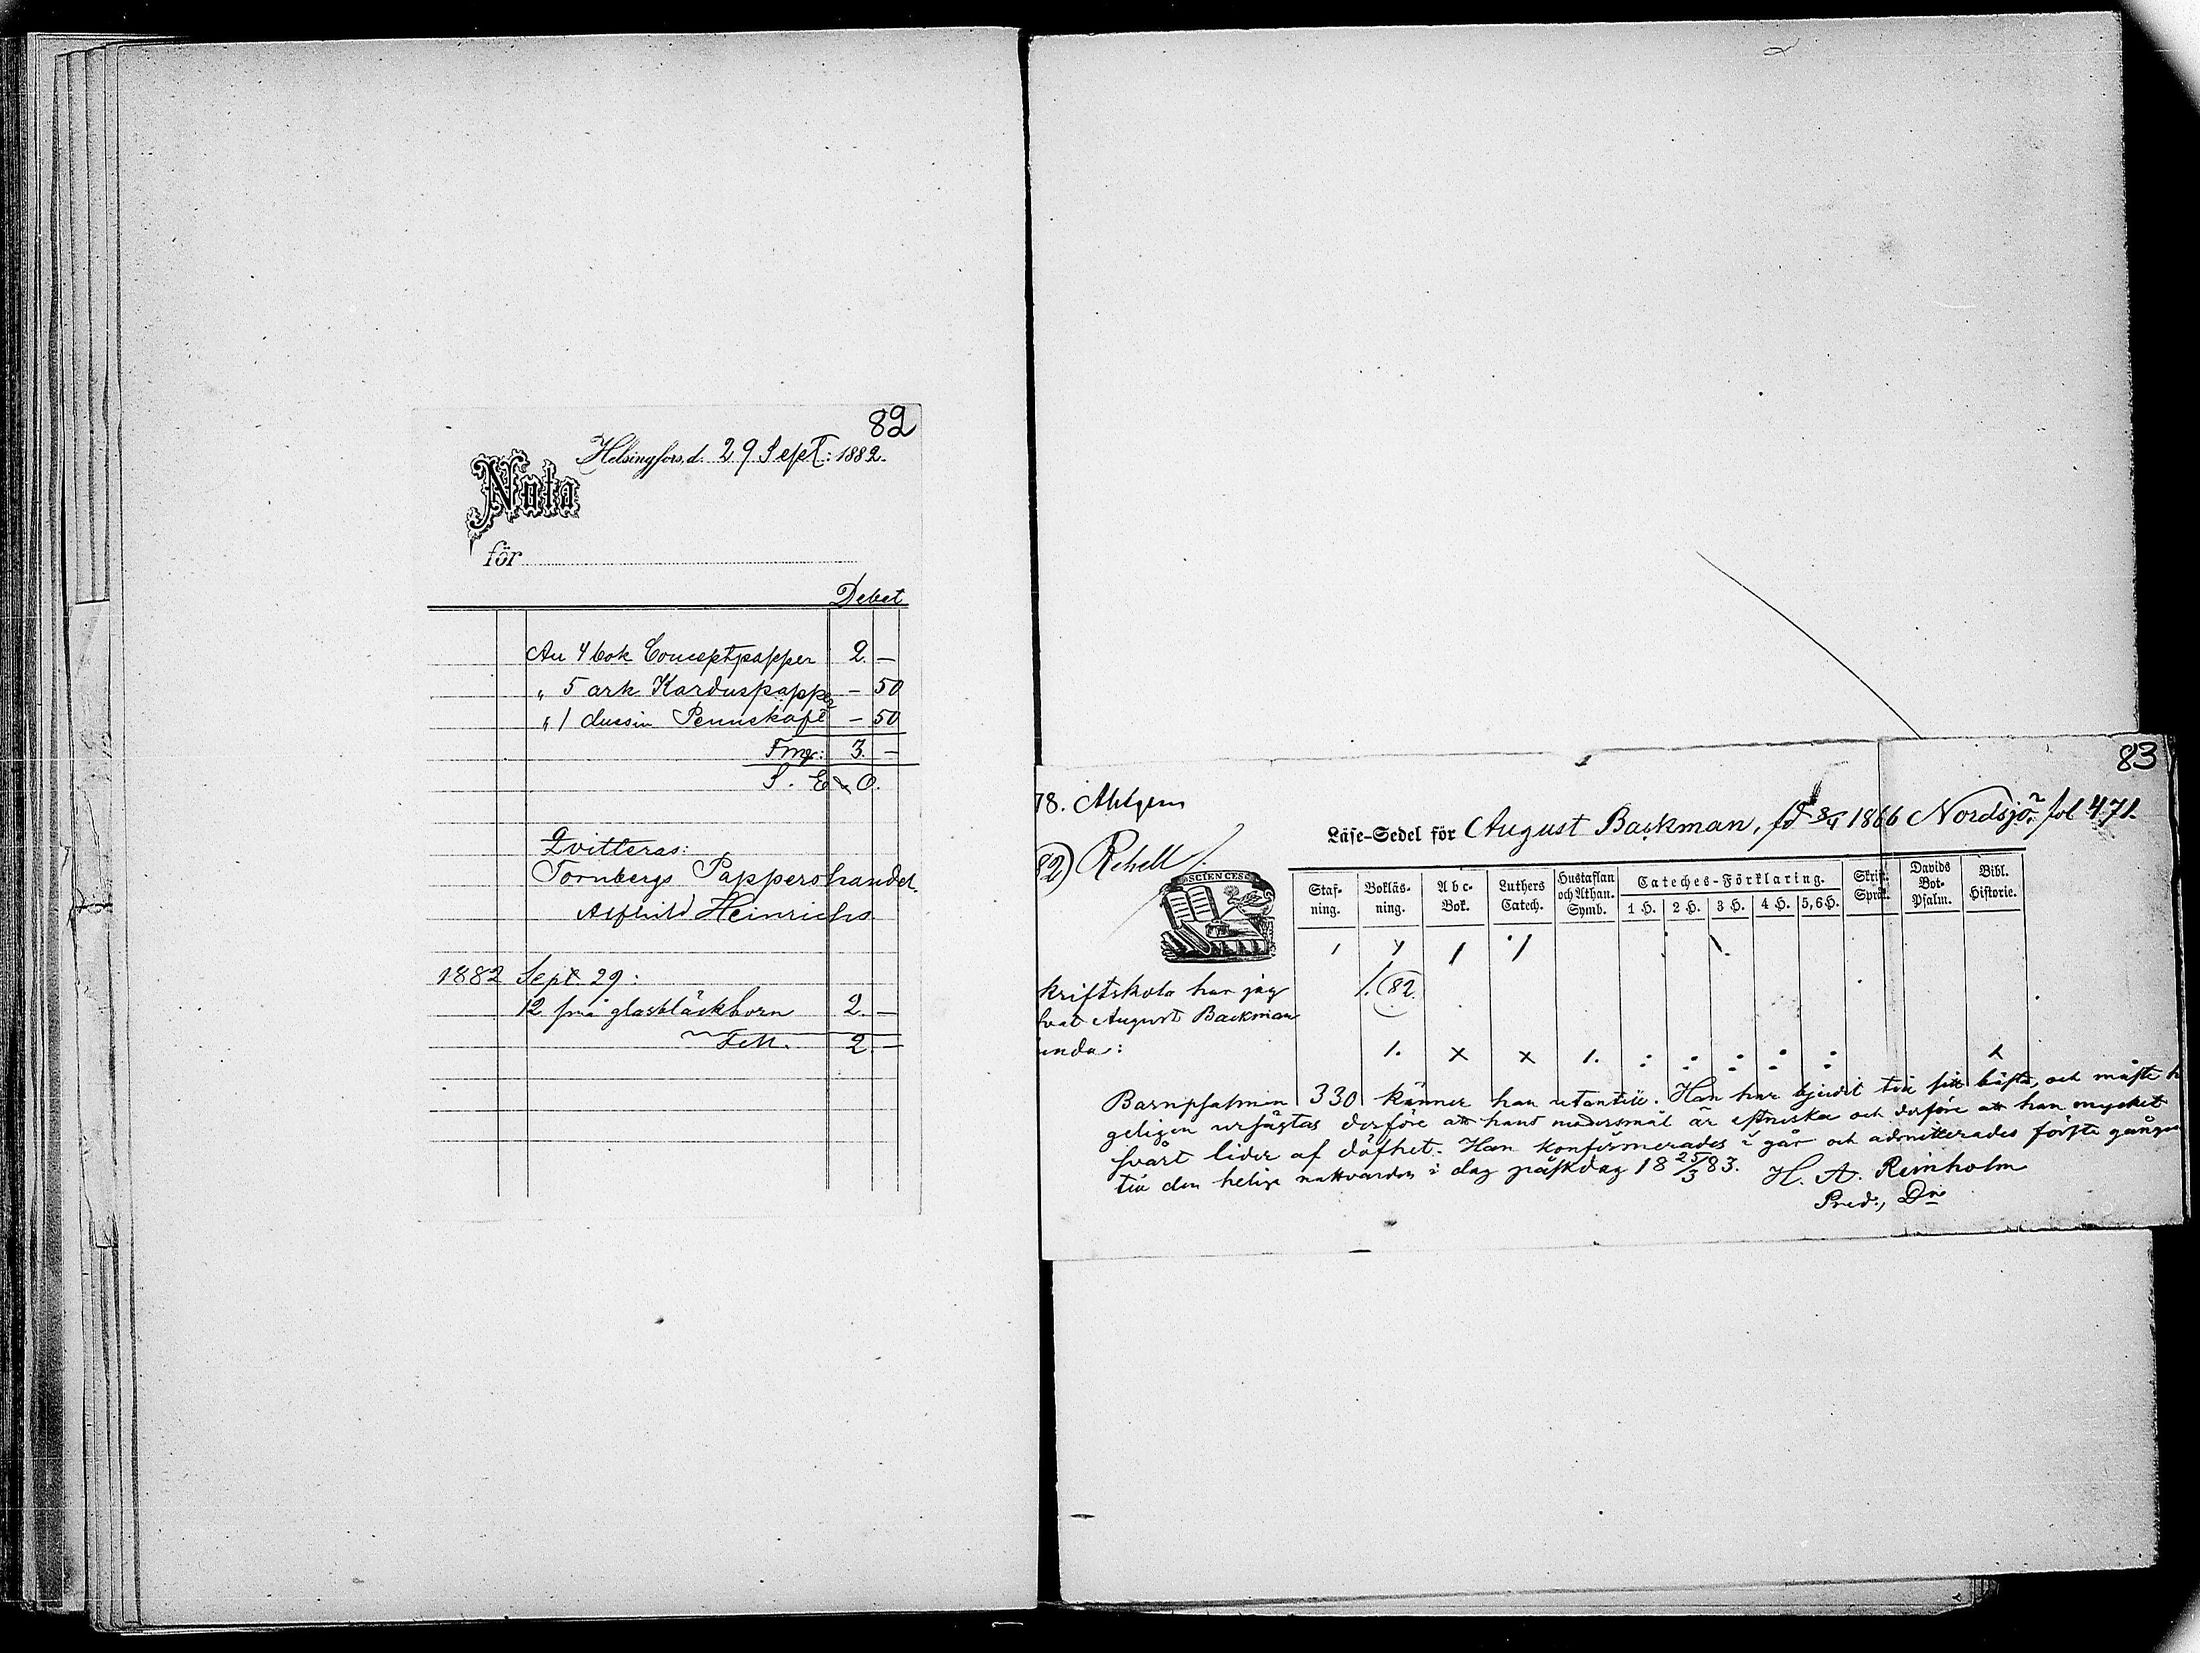 82
Helsingfors, d. 29 Sept: 1882.
Nota
för
Debet
An 4 bok Conceptpapper 2. —
" 5 ark Karduspapper — 50
" 1 dussin Pennskaft — 50
Fmg: 3. —
S. E & O.
Qvitteras:
Tornbergs Pappershandel
Alfhild Heinrichs
1882 Sept. 29:
12 små glasbläckhorn 2. —
2. —
83
78. Ahlgren
Läse-Sedel för August Backman, fd 3/4 1866 Nordsjö. fol 471.
82) Rehell
SCIENCES
Staf-ning. Bokläs-ning. Abc-Bok. Luthers Catech. Hustaflan och Athan. Symb. Cateches-Förklaring. Skrift. Språk. Davids Bot-Psalm. Bibl. Historie.
1 H. 2 H. 3 H. 4 H. 5,6 H.
kriftskola har jag
1. (82.
hvat August Backman
unda:
1. x x 1. : : : : : x
Barnpsalmen 330 känner han utantill. Han har bjudit till sitt bästa, och måste
geligen ursägtas derföre att hans modersmål är estniska och derföre att han mycket
svårt lider af döfhet. Han konfirmerades i går och admitterades förste gången
till den heliga nattvarden i dag påskdag 18 25/3 83. H. A. Reinholm
Pred., Dr